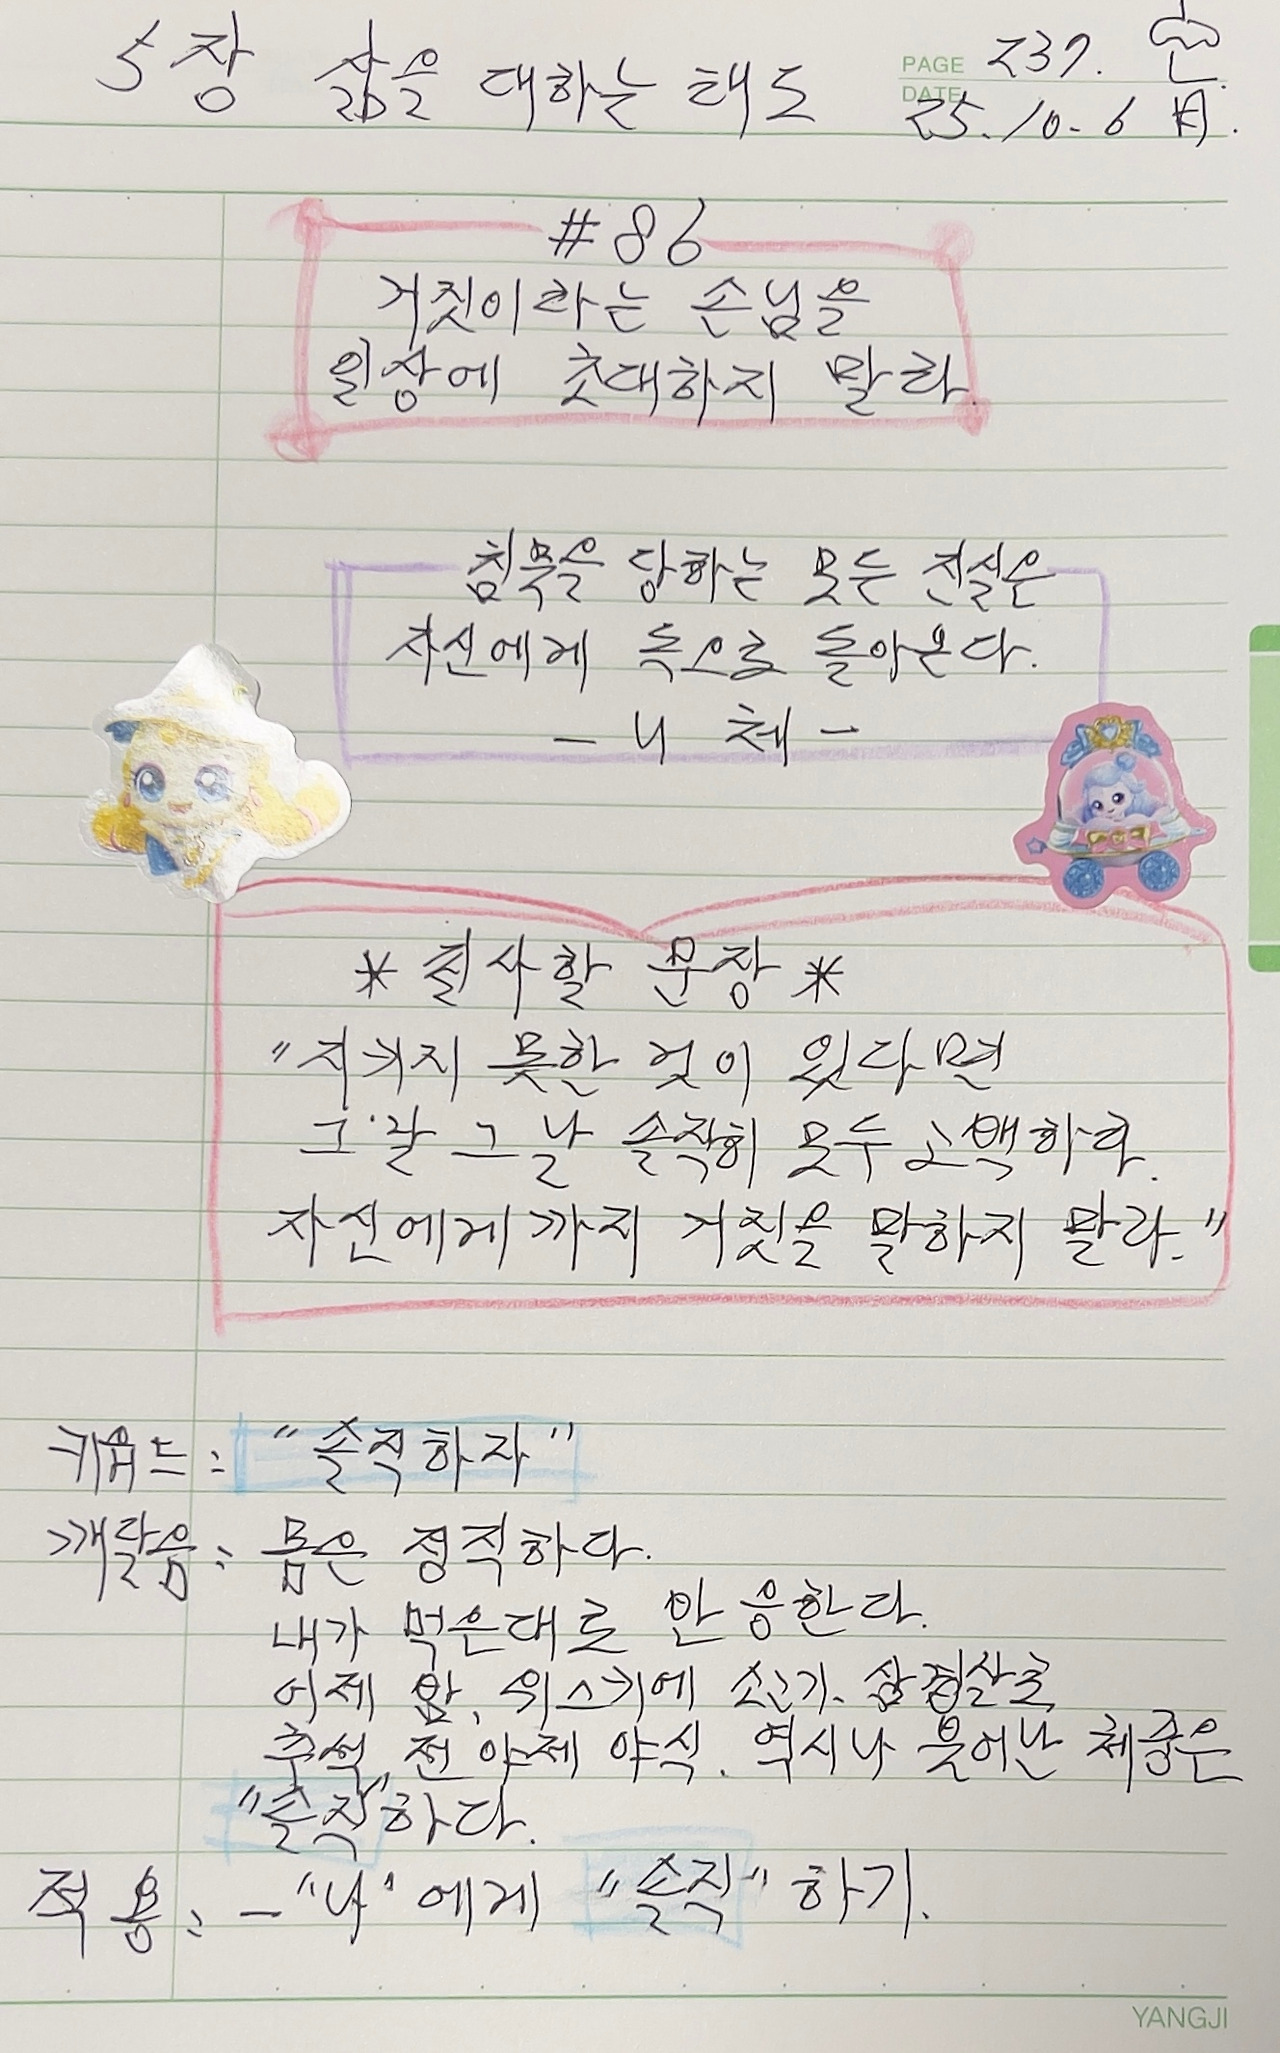 5장 삶을 대하는 태도
PAGE 237.
DATE 25.10.6 月.
#86
거짓이라는 손님을
일상에 초대하지 말라.
침묵을 당하는 모든 진실은
자신에게 독으로 돌아온다.
- 니체 -
* 필사할 문장 *
"지키지 못한 것이 있다면
그날 그날 솔직히 모두 고백하라.
자신에게까지 거짓을 말하지 말라."
키워드: "솔직하자"
깨달음: 몸은 정직하다.
내가 먹은대로 반응한다.
어제 밤, 위스키에 소고기, 삼겹살로
추석 전야제 야식. 역시나 불어난 체중은
"솔직"하다.
적용: - "나"에게 "솔직"하기.
YANGJI